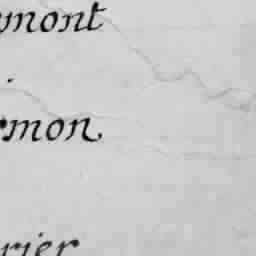 mont
rmon
rier